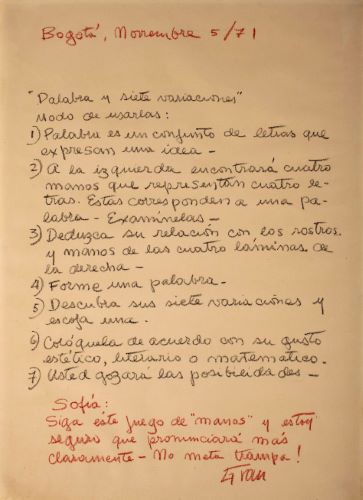 Bogotá, Noviembre 5/71
"Palabra y siete variaciones"
Modo de usarlas:
1) Palabra es un conjunto de letras que
expresan una idea -
2) A la izquierda encontrará cuatro
manos que representan cuatro le-
tras. Estas corresponden a una pa-
labra - Examínelas -
3) Deduzca su relación con los rostros
y manos de las cuatro láminas de
la derecha -
4) Forme una palabra -
5) Descubra sus siete variaciones y
escoja una.
6) Colóquela de acuerdo con su gusto
estético, literario o matemático.
7) Usted gozará las posibilidades -
Sofía:
Siga este juego de "manos" y estoy
seguro que pronunciará más
claramente - No meta trampa!